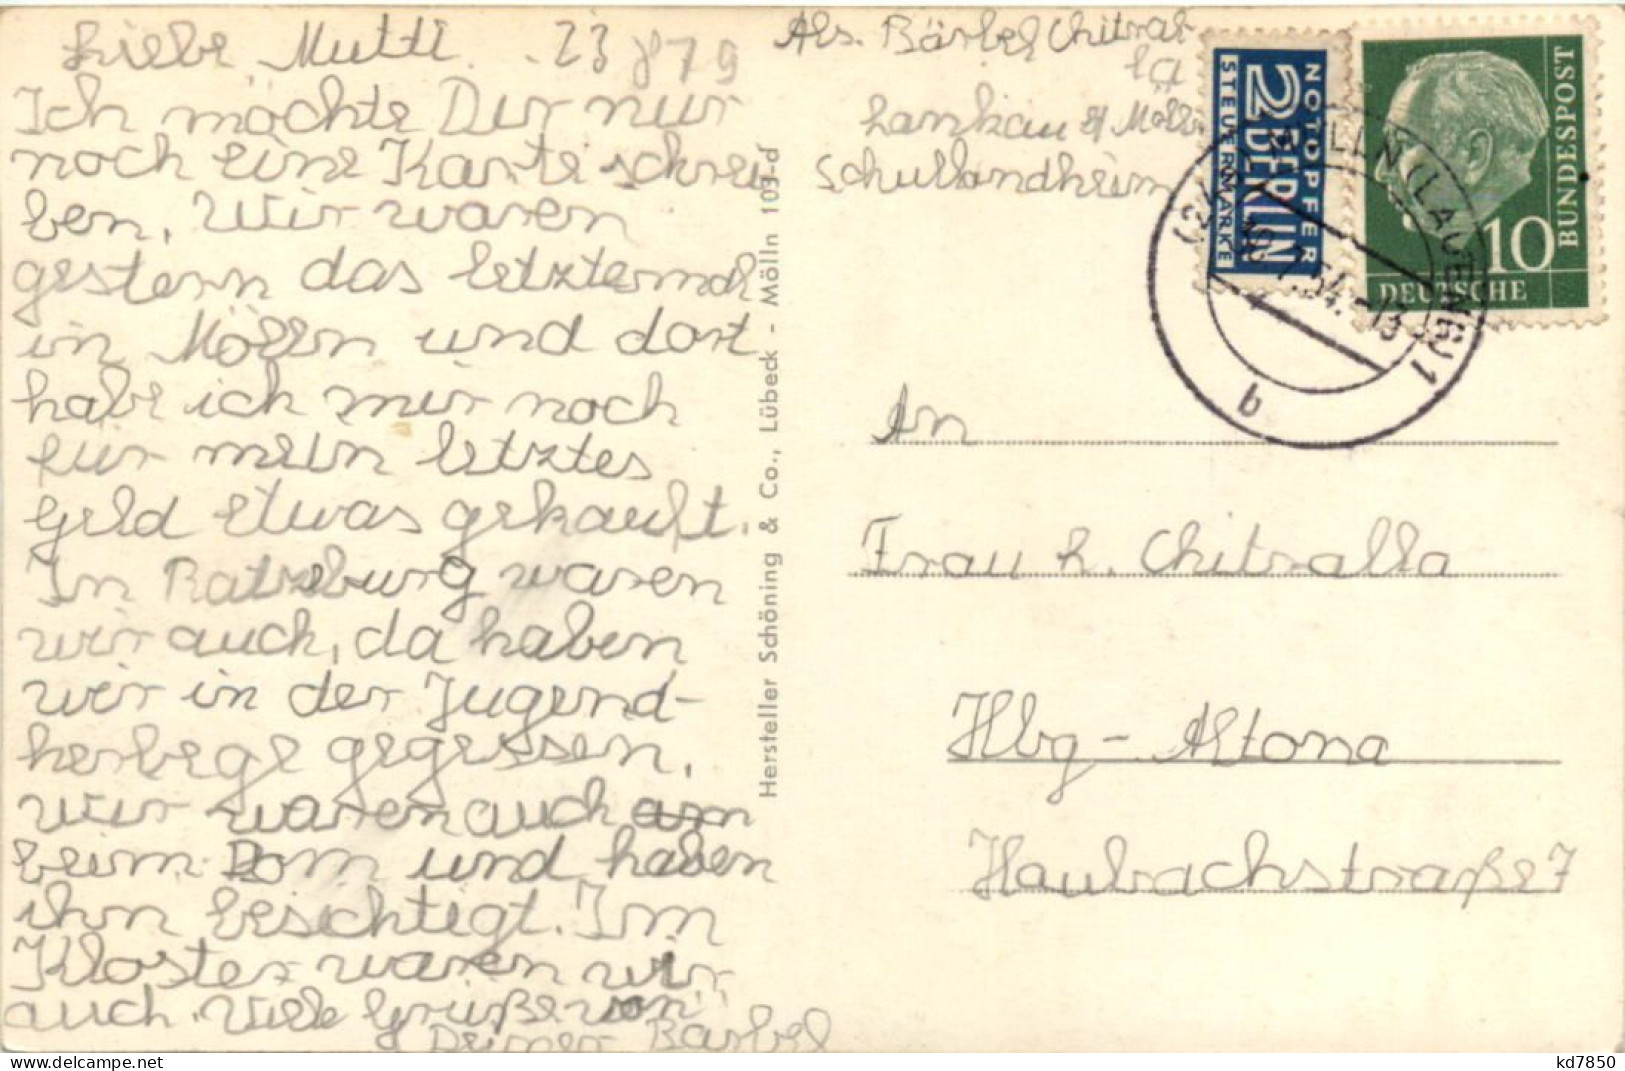 Liebe Mutti
23 879
Ich möchte Dir nur
noch eine Karte schrei
ben, Wir waren
gestern das letztemal
in Mölln und dort
habe ich mir noch
für mein letztes
Geld etwas gekauft.
In Ratzeburg waren
wir auch, da haben
wir in der Jugend-
herberge gegessen,
wir waren auch am
beim Dom und haben
ihn besichtigt. Im
Kloster waren wir
auch. Viele Grüße von
Deiner Bärbel
Hersteller Schöning & Co., Lübeck - Mölln 103-d
Abs. Bärbel Chitral
la
Lankau b/ Mölln
Schullandheim
NOTOPFER
2 BERLIN
STEUERMARKE
DEUTSCHE
BUNDESPOST
10
MÖLLN (LAUENBG) 1
7.54.-13
b
An
Frau L. Chitralla
Hbg - Altona
Haubachstraße 7
kd7850